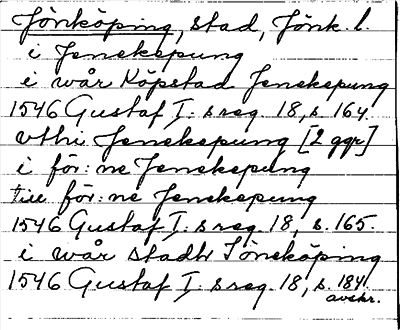 Jönköping, stad, Jönk. l.
i Jenekepung
i wår Köpstad Jenekepung
1546 Gustaf I: s reg. 18, s. 164.
vthi Jenekepung [2 ggr]
i för:ne Jenekepung
till för:ne Jenekepung
1546 Gustaf I: s reg. 18, s. 165.
i wår stadh Jöneköping
1546 Gustaf I: s reg. 18, s. 184.
avskr.